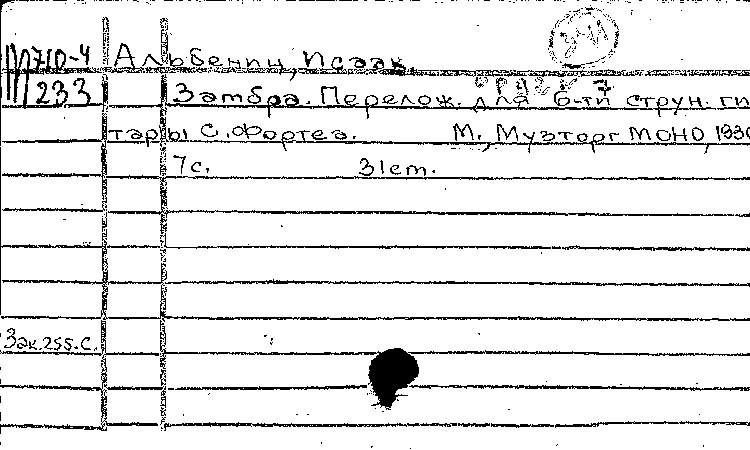 341
М710-4 Альбениц, Исаак.
233 Замбра. Перелож. для 6-ти струн. ги
тары С. Фортеа. М., Музторг МОНО, 1930
7с. 31cm.
Зак.255.С.